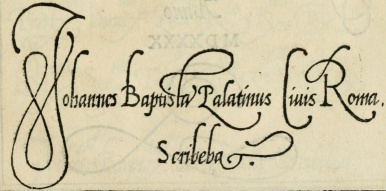 Johannes Baptista Palatinus Ciuis Roma.
Scribeba